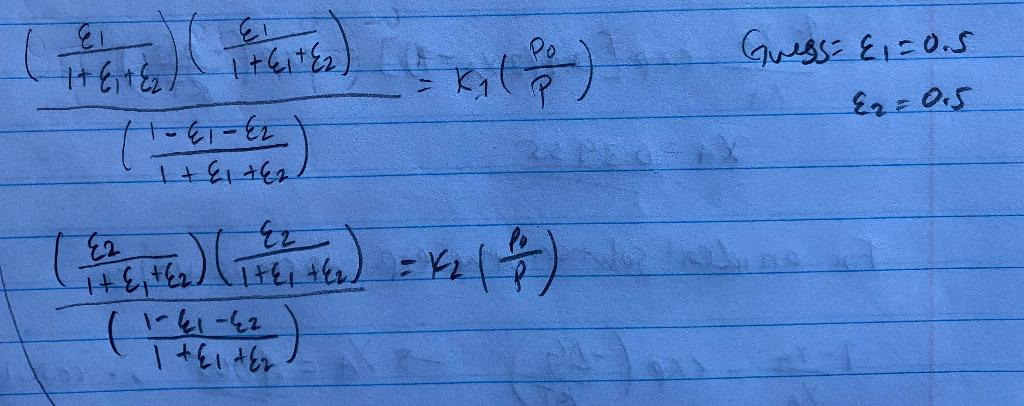 (ε1 / 1+ε1+ε2) (ε1 / 1+ε1+ε2) / (1-ε1-ε2 / 1+ε1+ε2) = K1 (P0 / P)
Guess: ε1 = 0.5
ε2 = 0.5
(ε2 / 1+ε1+ε2) (ε2 / 1+ε1+ε2) / (1-ε1-ε2 / 1+ε1+ε2) = K2 (P0 / P)